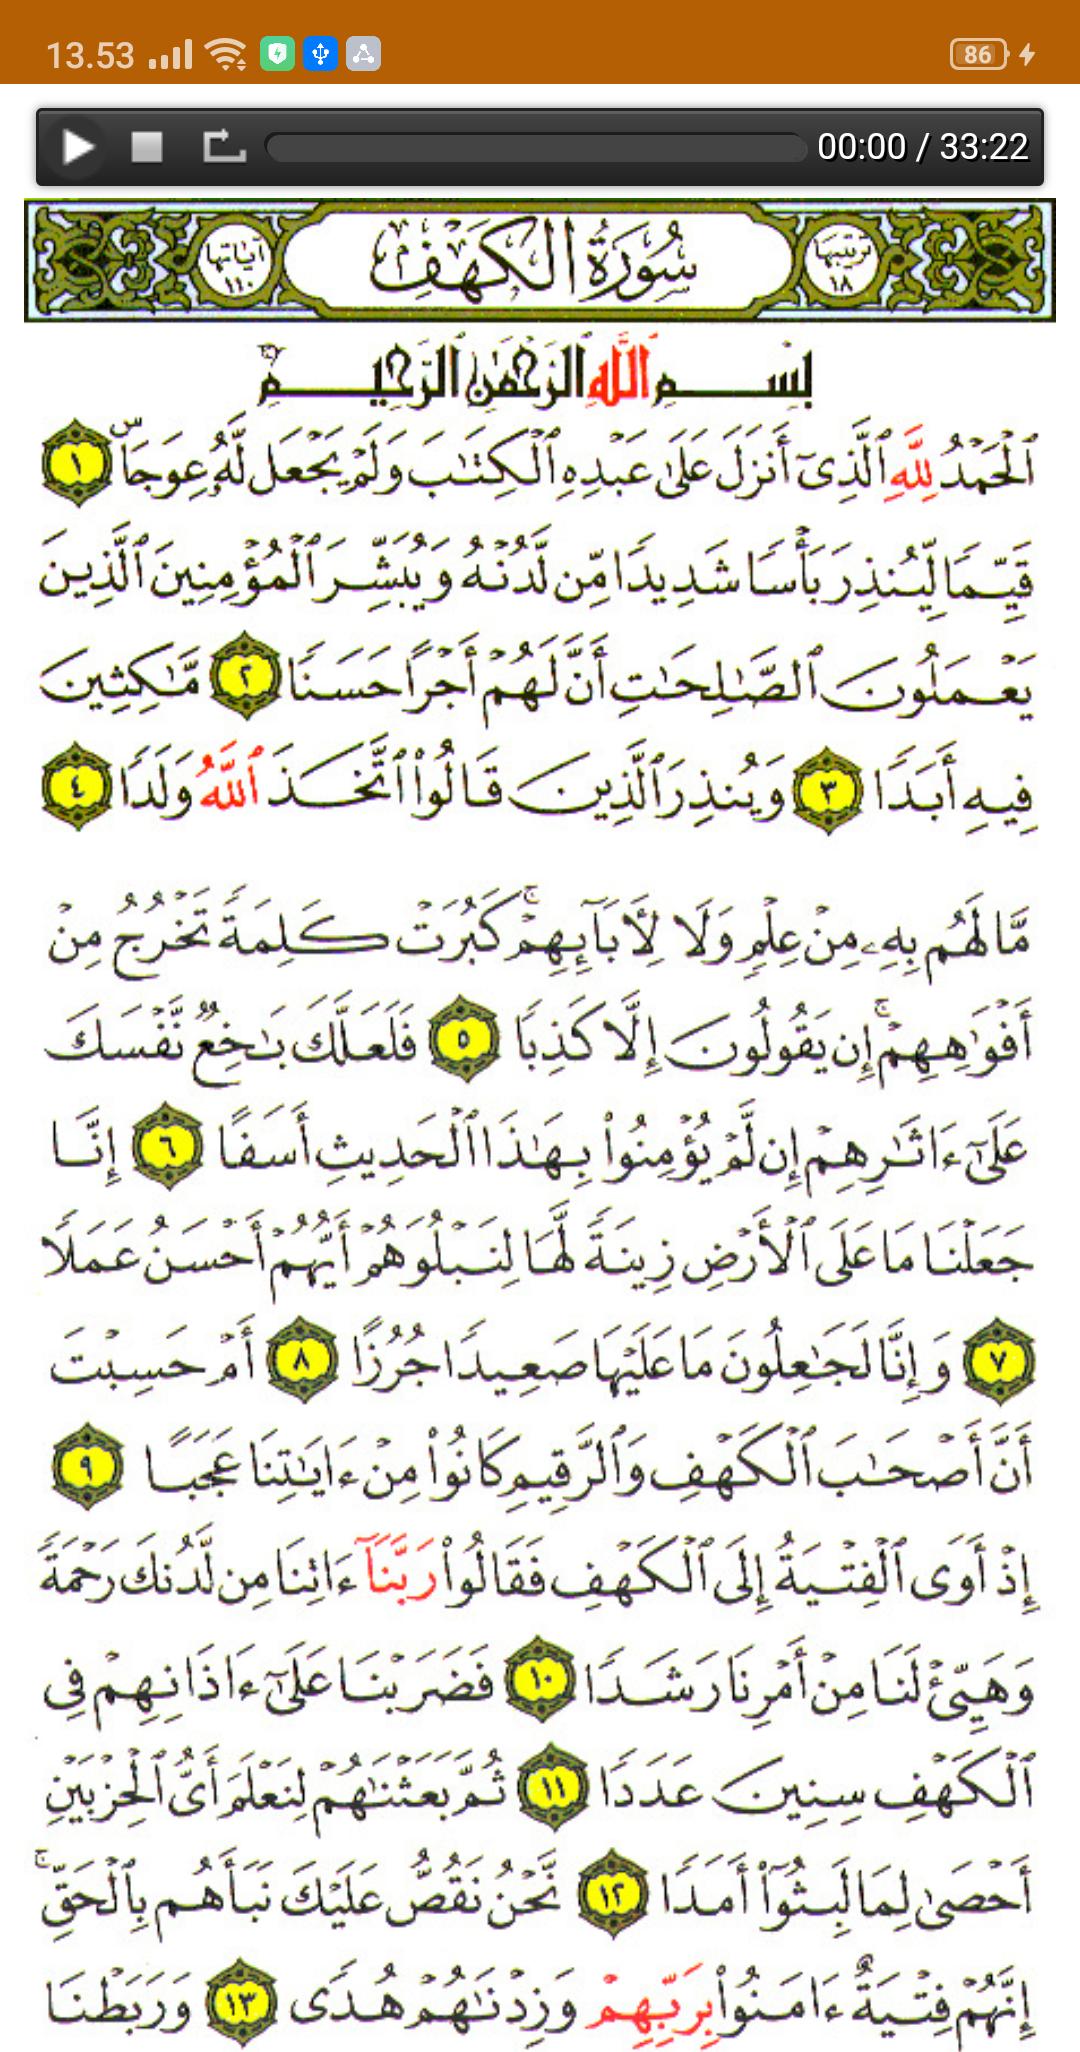 13.53
86
00:00 / 33:22
ترتيبها ١٨ سُورَةُ الكَهْفِ آياتها ١١٠
بِسْمِ ٱللَّهِ ٱلرَّحْمَٰنِ ٱلرَّحِيمِ
ٱلْحَمْدُ لِلَّهِ ٱلَّذِىٓ أَنزَلَ عَلَىٰ عَبْدِهِ ٱلْكِتَٰبَ وَلَمْ يَجْعَل لَّهُۥ عِوَجَاۜ ١
قَيِّمًا لِّيُنذِرَ بَأْسًا شَدِيدًا مِّن لَّدُنْهُ وَيُبَشِّرَ ٱلْمُؤْمِنِينَ ٱلَّذِينَ
يَعْمَلُونَ ٱلصَّٰلِحَٰتِ أَنَّ لَهُمْ أَجْرًا حَسَنًا ٢ مَّٰكِثِينَ
فِيهِ أَبَدًا ٣ وَيُنذِرَ ٱلَّذِينَ قَالُوا۟ ٱتَّخَذَ ٱللَّهُ وَلَدًا ٤
مَّا لَهُم بِهِۦ مِنْ عِلْمٍ وَلَا لِأَبَآئِهِمْ ۚ كَبُرَتْ كَلِمَةً تَخْرُجُ مِنْ
أَفْوَٰهِهِمْ ۚ إِن يَقُولُونَ إِلَّا كَذِبًا ٥ فَلَعَلَّكَ بَٰخِعٌ نَّفْسَكَ
عَلَىٰٓ ءَاثَٰرِهِمْ إِن لَّمْ يُؤْمِنُوا۟ بِهَٰذَا ٱلْحَدِيثِ أَسَفًا ٦ إِنَّا
جَعَلْنَا مَا عَلَى ٱلْأَرْضِ زِينَةً لَّهَا لِنَبْلُوَهُمْ أَيُّهُمْ أَحْسَنُ عَمَلًا
٧ وَإِنَّا لَجَٰعِلُونَ مَا عَلَيْهَا صَعِيدًا جُرُزًا ٨ أَمْ حَسِبْتَ
أَنَّ أَصْحَٰبَ ٱلْكَهْفِ وَٱلرَّقِيمِ كَانُوا۟ مِنْ ءَايَٰتِنَا عَجَبًا ٩
إِذْ أَوَى ٱلْفِتْيَةُ إِلَى ٱلْكَهْفِ فَقَالُوا۟ رَبَّنَآ ءَاتِنَا مِن لَّدُنكَ رَحْمَةً
وَهَيِّئْ لَنَا مِنْ أَمْرِنَا رَشَدًا ١٠ فَضَرَبْنَا عَلَىٰٓ ءَاذَانِهِمْ فِى
ٱلْكَهْفِ سِنِينَ عَدَدًا ١١ ثُمَّ بَعَثْنَٰهُمْ لِنَعْلَمَ أَىُّ ٱلْحِزْبَيْنِ
أَحْصَىٰ لِمَا لَبِثُوٓا۟ أَمَدًا ١٢ نَّحْنُ نَقُصُّ عَلَيْكَ نَبَأَهُم بِٱلْحَقِّ ۚ
إِنَّهُمْ فِتْيَةٌ ءَامَنُوا۟ بِرَبِّهِمْ وَزِدْنَٰهُمْ هُدًى ١٣ وَرَبَطْنَا